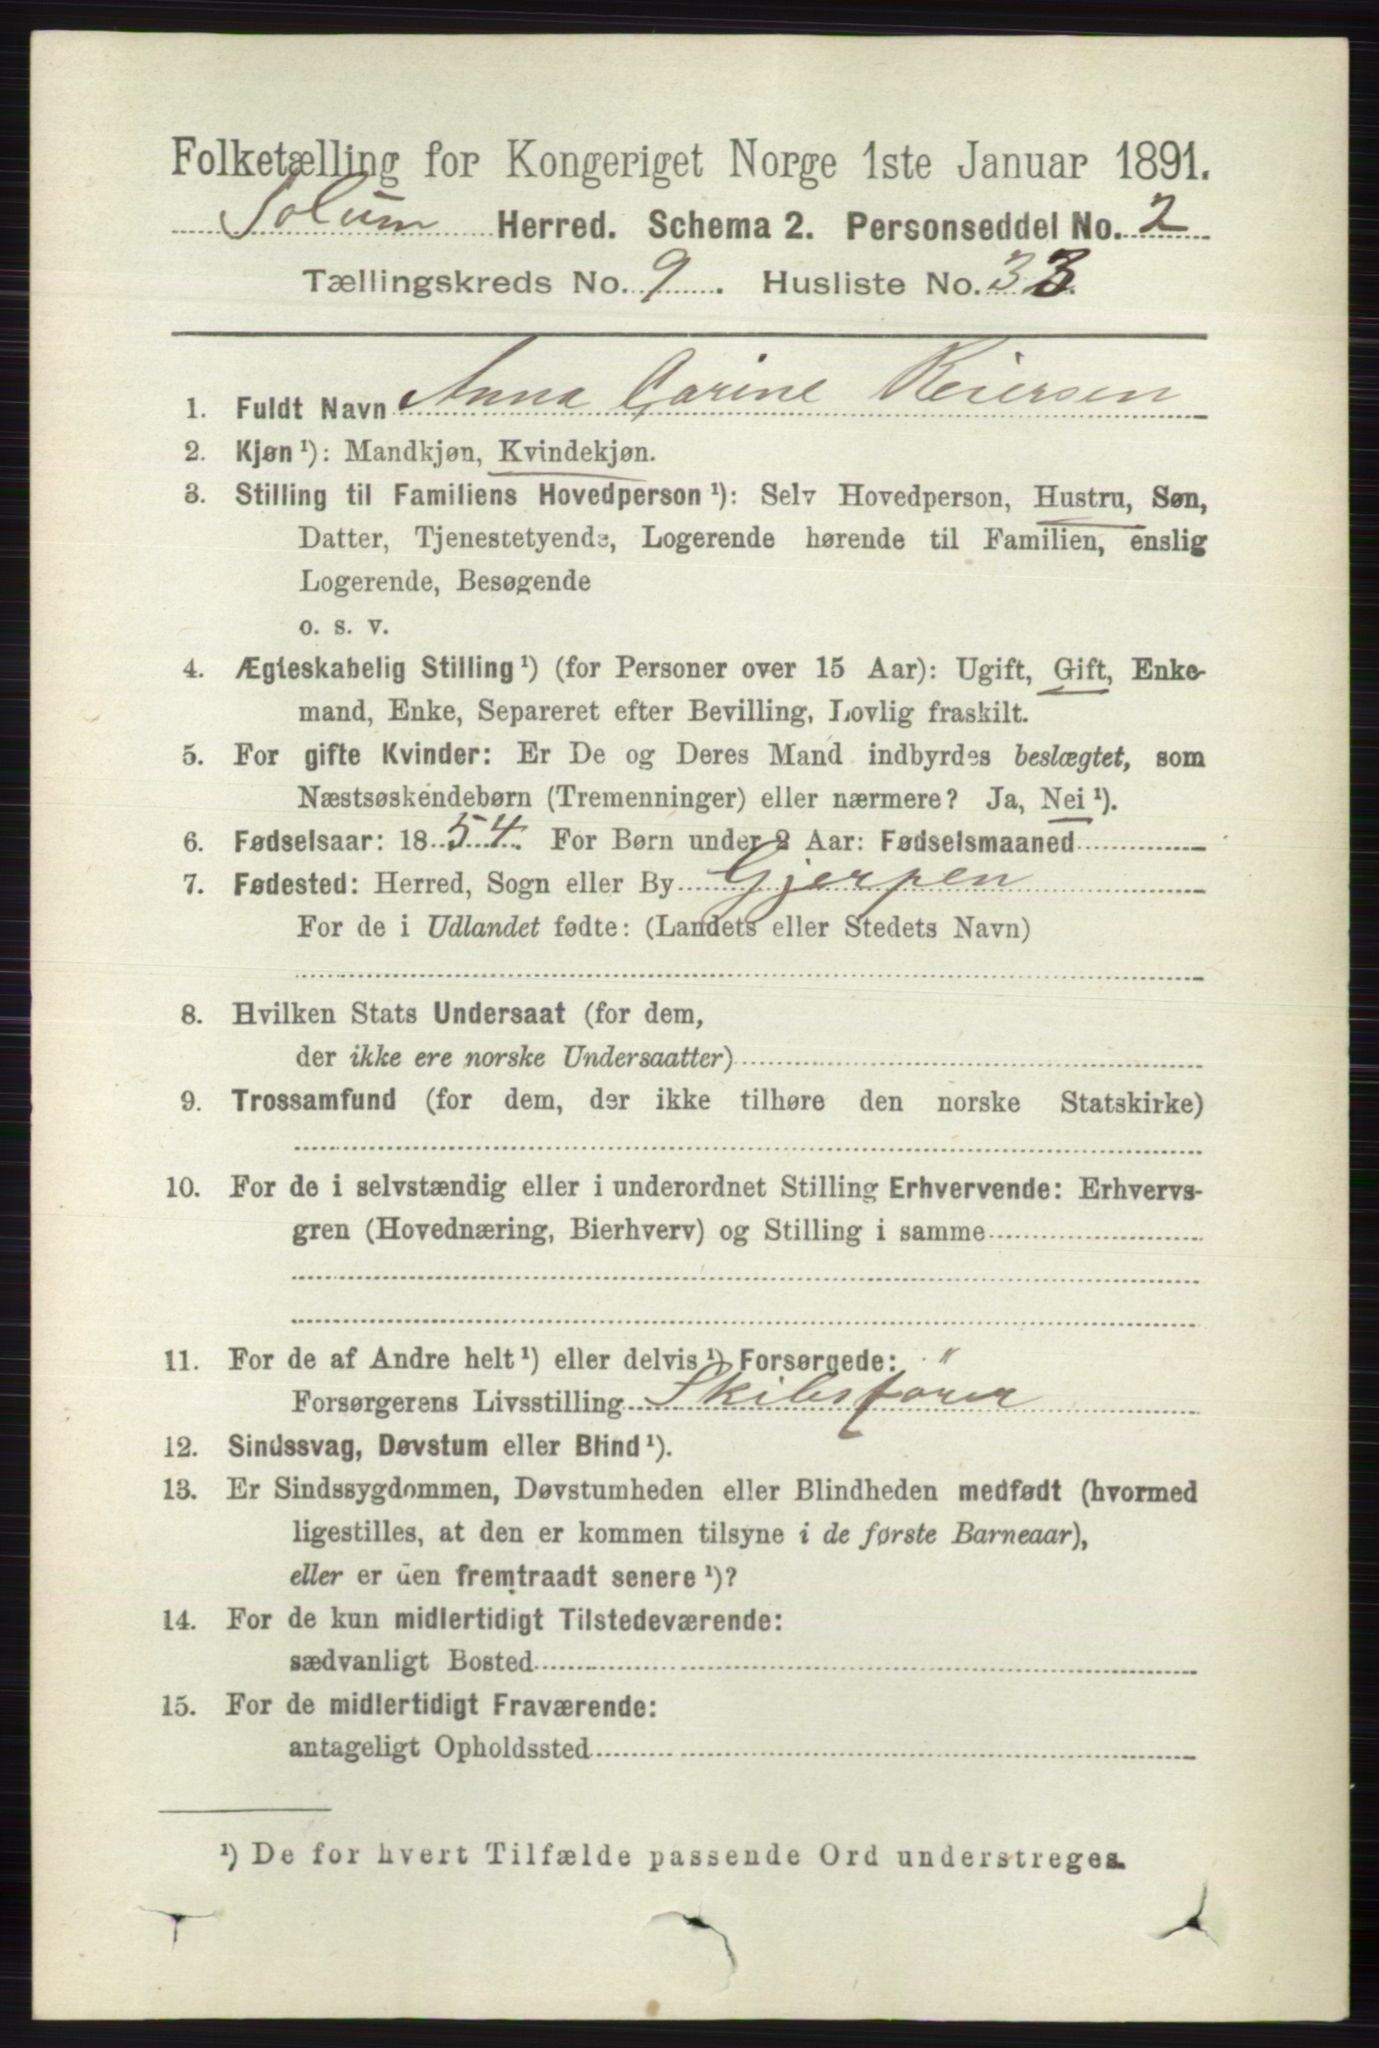 Folketælling for Kongeriget Norge 1ste Januar 1891.
Solum Herred. Schema 2. Personseddel No. 2
Tællingskreds No. 9. Husliste No. 33.
1. Fuldt Navn Anna Carine Reiersen
2. Kjøn¹): Mandkjøn, Kvindekjøn.
3. Stilling til Familiens Hovedperson¹): Selv Hovedperson, Hustru, Søn,
Datter, Tjenestetyende, Logerende hørende til Familien, enslig
Logerende, Besøgende
o. s. v.
4. Ægteskabelig Stilling¹) (for Personer over 15 Aar): Ugift, Gift, Enke-
mand, Enke, Separeret efter Bevilling, Lovlig fraskilt.
5. For gifte Kvinder: Er De og Deres Mand indbyrdes beslægtet, som
Næstsøskendebørn (Tremenninger) eller nærmere? Ja, Nei¹).
6. Fødselsaar: 1854. For Børn under 2 Aar: Fødselsmaaned
7. Fødested: Herred, Sogn eller By Gjerpen
For de i Udlandet fødte: (Landets eller Stedets Navn)
8. Hvilken Stats Undersaat (for dem,
der ikke ere norske Undersaatter)
9. Trossamfund (for dem, der ikke tilhøre den norske Statskirke)
10. For de i selvstændig eller i underordnet Stilling Erhvervende: Erhvervs-
gren (Hovednæring, Bierhverv) og Stilling i samme
11. For de af Andre helt¹) eller delvis¹) Forsørgede:
Forsørgerens Livsstilling Skibsförer
12. Sindssvag, Døvstum eller Blind¹).
13. Er Sindssygdommen, Døvstumheden eller Blindheden medfødt (hvormed
ligestilles, at den er kommen tilsyne i de første Barneaar),
eller er den fremtraadt senere¹)?
14. For de kun midlertidigt Tilstedeværende:
sædvanligt Bosted
15. For de midlertidigt Fraværende:
antageligt Opholdssted
¹) De for hvert Tilfælde passende Ord understreges.